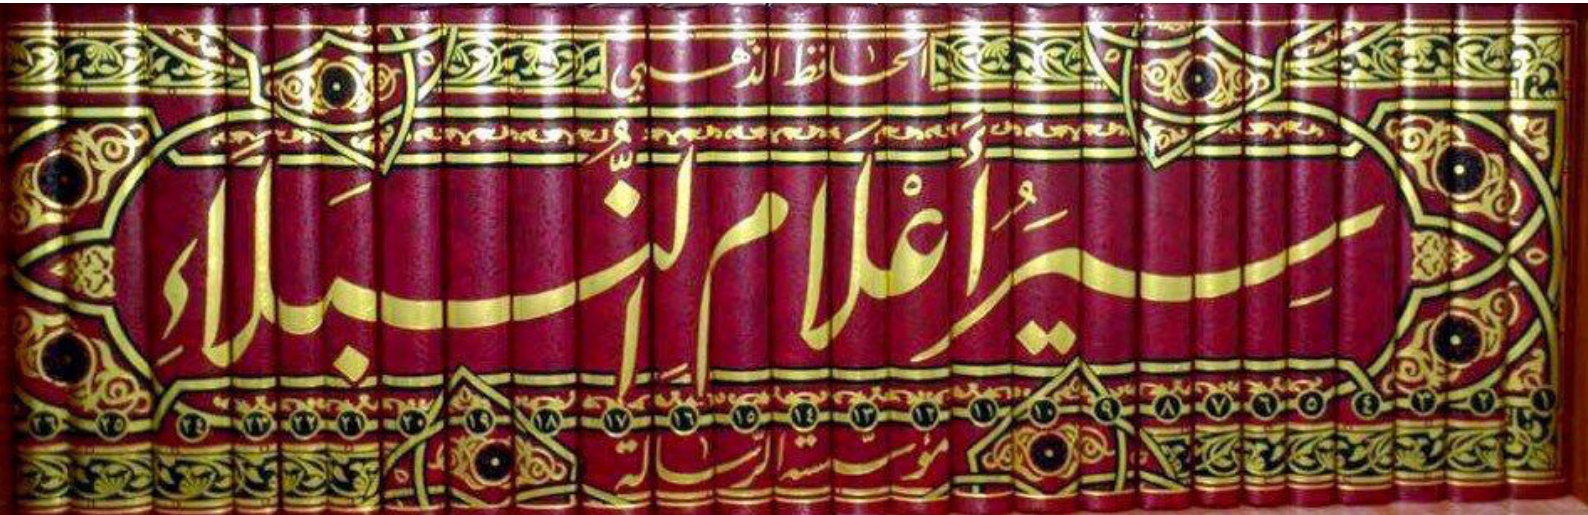 الحافظ الذّهبي
سِيَرُ أَعْلَامِ النُّبَلَاءِ
١ ٢ ٣ ٤ ٥ ٦ ٧ ٨ ٩ ١٠ ١١ ١٢ ١٣ ١٤ ١٥ ١٦ ١٧ ١٨ ١٩ ٢٠ ٢١ ٢٢ ٢٣ ٢٤ ٢٥ ٢٦
مؤسّسة الرّسالة